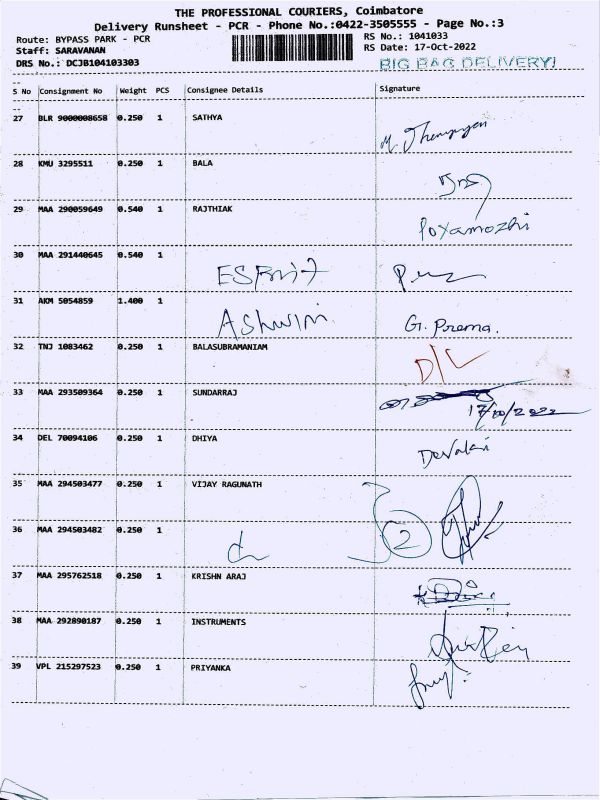 THE PROFESSIONAL COURIERS, Coimbatore
Delivery Runsheet - PCR - Phone No.:0422-3505555 - Page No.:3
Route: BYPASS PARK - PCR RS No.: 1041033
Staff: SARAVANAN RS Date: 17-Oct-2022
DRS No.: DCJB104103303 BIG BAG DELIVERY!
S No Consignment No Weight PCS Consignee Details Signature
27 BLR 9000008658 0.250 1 SATHYA
28 KMU 3295511 0.250 1 BALA
29 MAA 290059649 0.540 1 RAJTHIAK Poyamozhi
30 MAA 291440645 0.540 1
31 AKM 5054859 1.400 1 Ashwini G. Prema.
32 TNJ 1083462 0.250 1 BALASUBRAMANIAM D/L
33 MAA 293509364 0.250 1 SUNDARRAJ 17/10/2022
34 DEL 70094106 0.250 1 DHIYA
35 MAA 294503477 0.250 1 VIJAY RAGUNATH
36 MAA 294503482 0.250 1 2
37 MAA 295762518 0.250 1 KRISHN ARAJ
38 MAA 292890187 0.250 1 INSTRUMENTS
39 VPL 215297523 0.250 1 PRIYANKA